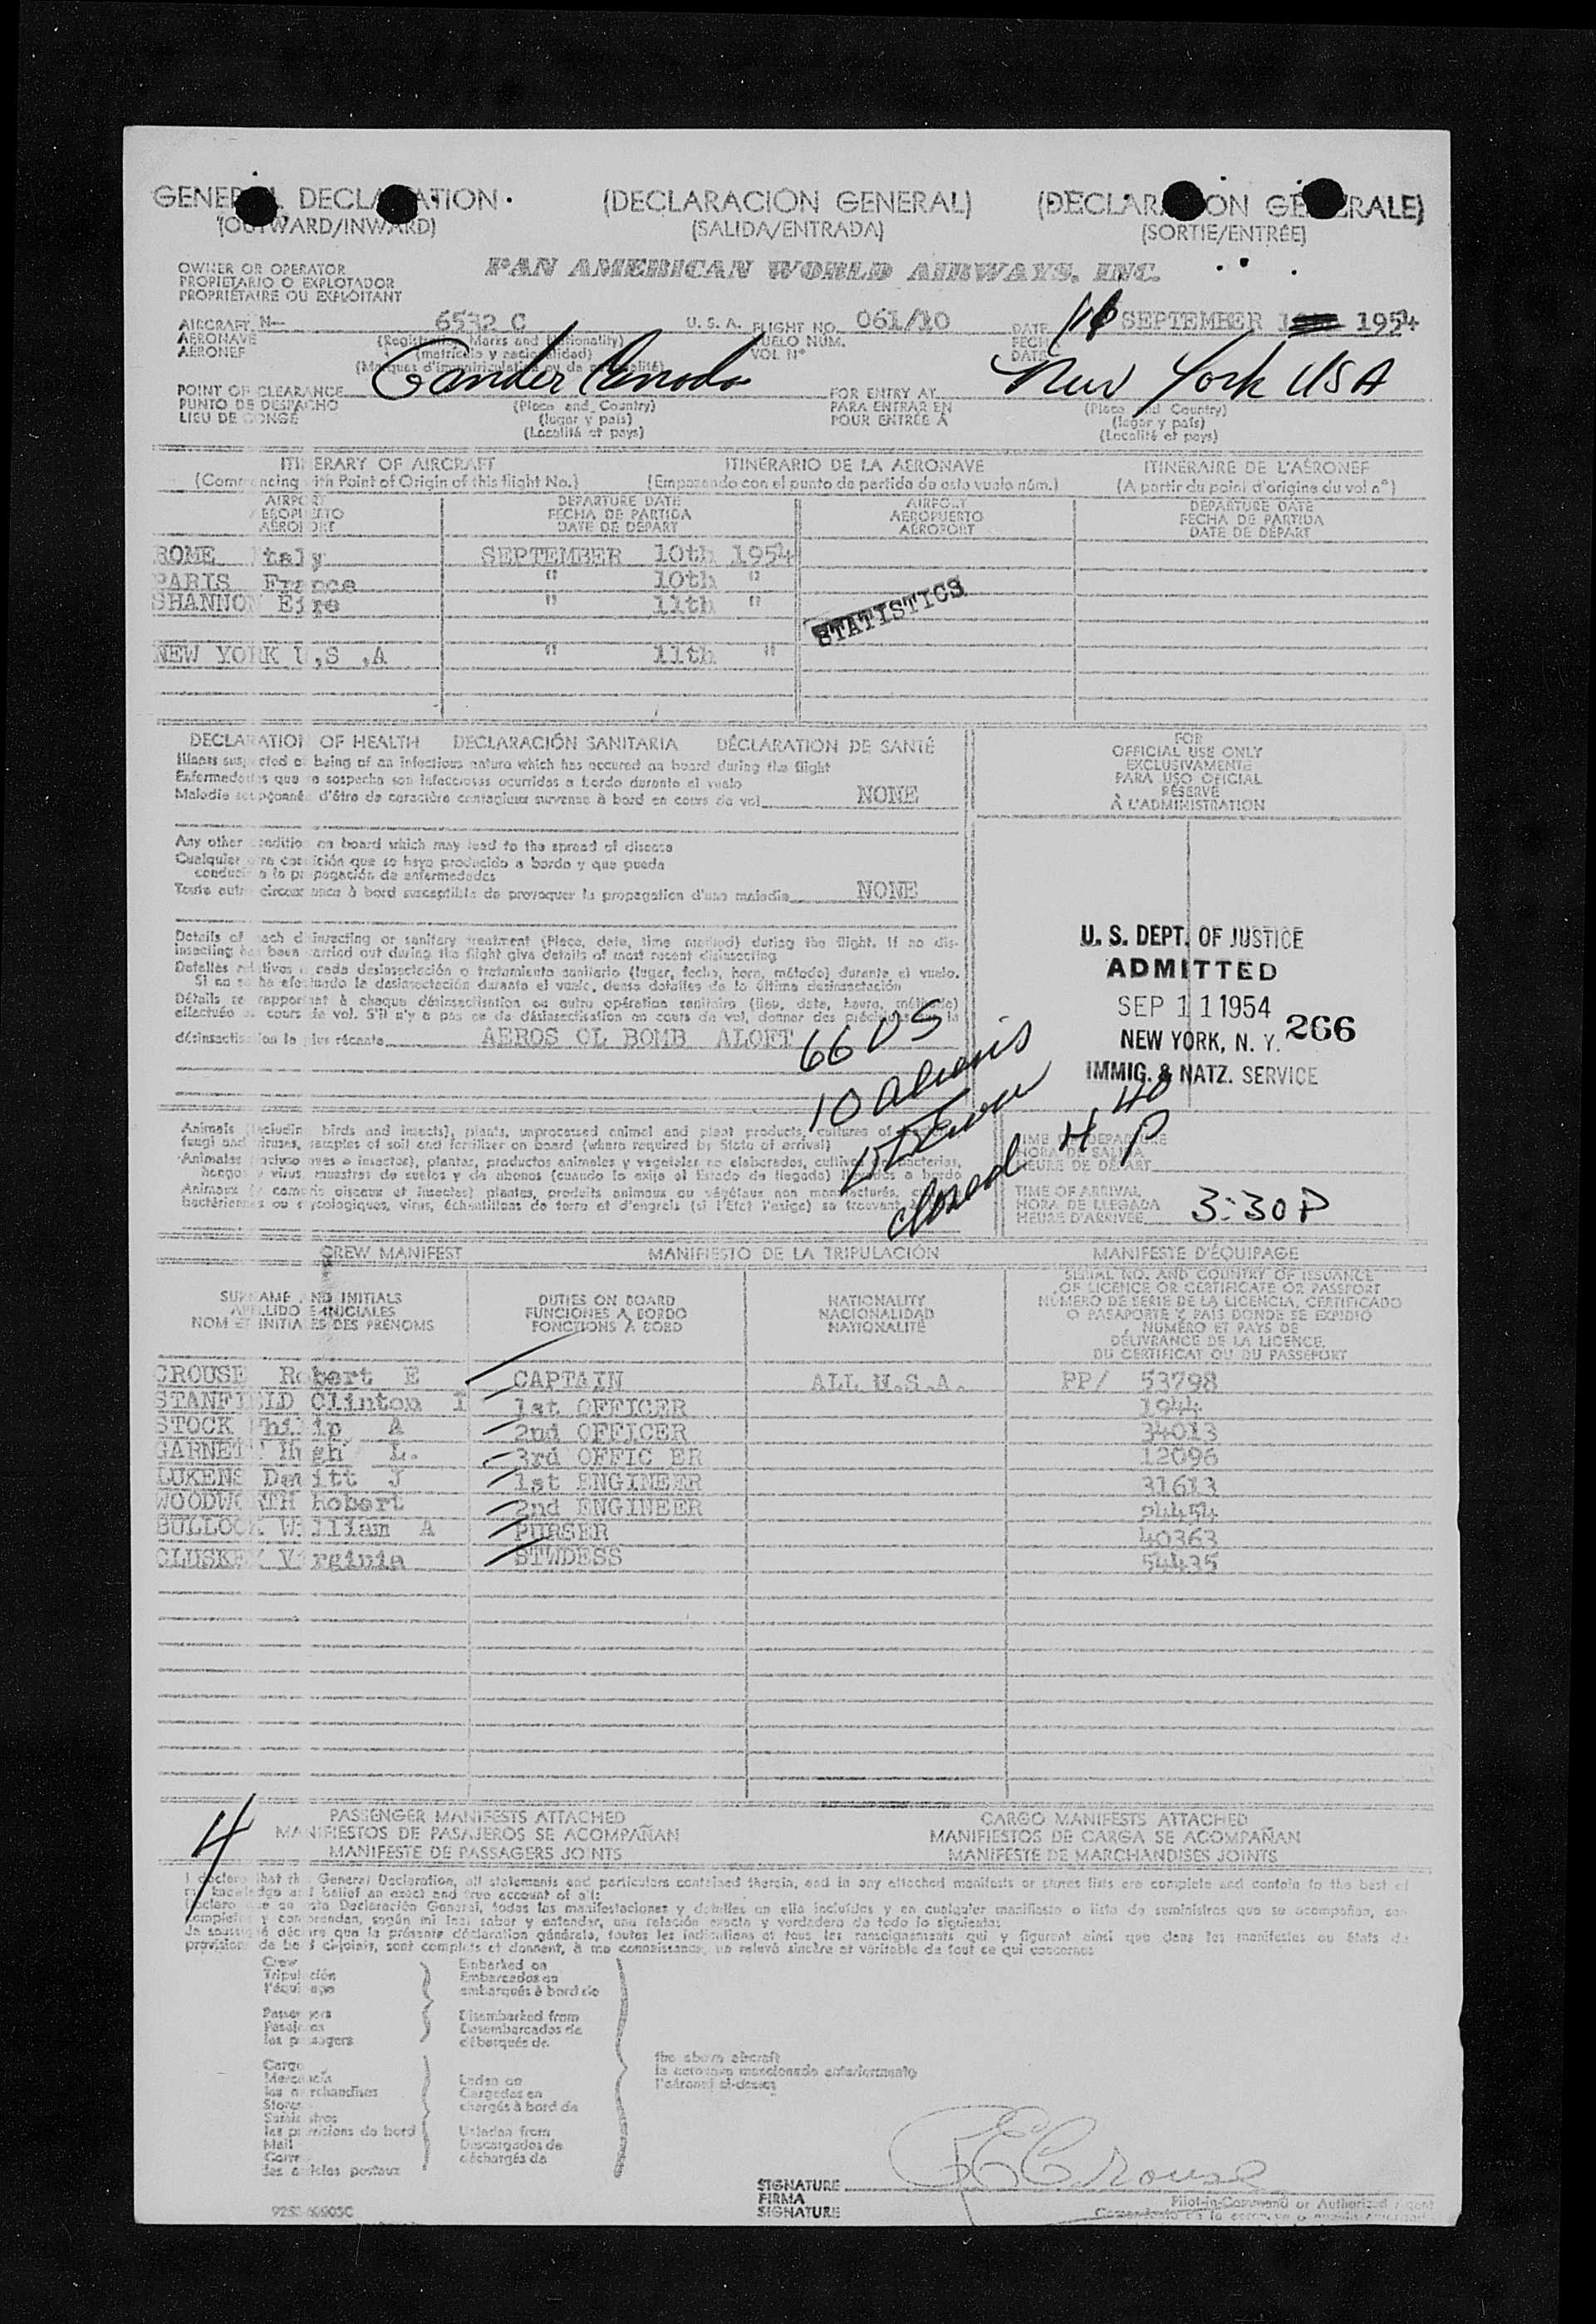 GENERAL DECLARATION (DECLARACIÓN GENERAL) (DECLARATION GÉNÉRALE)
(OUTWARD/INWARD) (SALIDA/ENTRADA) (SORTIE/ENTRÉE)
OWNER OR OPERATOR PAN AMERICAN WORLD AIRWAYS, INC.
PROPIETARIO O EXPLOTADOR
PROPRIÉTAIRE OU EXPLOITANT
AIRCRAFT N— 6532 C U. S. A. FLIGHT NO. 061/10 DATE 11 SEPTEMBER 1954
AERONAVE (Registration Marks and Nationality) VUELO NÚM. FECHA
AÉRONEF (matrícula y nacionalidad) VOL Nº DATE
(Marques d'immatriculation ou de nationalité)
POINT OF CLEARANCE Gander Canada FOR ENTRY AT New York USA
PUNTO DE DESPACHO (Place and Country) PARA ENTRAR EN (Place and Country)
LIEU DE CONGÉ (lugar y país) POUR ENTRÉE À (lugar y país)
(Localité et pays) (Localité et pays)
ITINERARY OF AIRCRAFT ITINERARIO DE LA AERONAVE ITINÉRAIRE DE L'AÉRONEF
(Commencing with Point of Origin of this flight No.) (Empezando con el punto de partida de este vuelo núm.) (A partir du point d'origine du vol nº)
AIRPORT DEPARTURE DATE AIRPORT DEPARTURE DATE
AEROPUERTO FECHA DE PARTIDA AEROPUERTO FECHA DE PARTIDA
AÉROPORT DATE DE DÉPART AÉROPORT DATE DE DÉPART
ROME Italy SEPTEMBER 10th 1954
PARIS France " 10th "
SHANNON Eire " 11th "
STATISTICS
NEW YORK U,S ,A " 11th "
DECLARATION OF HEALTH DECLARACIÓN SANITARIA DÉCLARATION DE SANTÉ
FOR
OFFICIAL USE ONLY
EXCLUSIVAMENTE
PARA USO OFICIAL
RÉSERVÉ
À L'ADMINISTRATION
Illness suspected of being of an infectious nature which has occured on board during the flight
Enfermedades que se sospecha son infecciosas ocurridas a bordo durante el vuelo
Maladie soupçonnée d'être de caractère contagieux survenue à bord en cours de vol NONE
Any other condition on board which may lead to the spread of disease
Cualquier otra condición que se haya producido a bordo y que pueda
conducir a la propagación de enfermedades
Toute autre circonstance à bord susceptible de provoquer la propagation d'une maladie NONE
Details of each disinsecting or sanitary treatment (Place, date, time method) during the flight. If no dis-
insecting has been carried out during the flight give details of most recent disinsecting
Detalles relativos a cada desinsectación o tratamiento sanitario (lugar, fecha, hora, método) durante el vuelo.
Si no se ha efectuado la desinsectación durante el vuelo, dense detalles de la última desinsectación
Détails se rapportant à chaque désinsectisation ou autre opération sanitaire (lieu, date, heure, méthode)
effectuée au cours de vol. S'il n'y a pas eu de désinsectisation en cours de vol, donner des précisions sur la
désinsectisation la plus récente AEROS OL BOMB ALOFT
U. S. DEPT. OF JUSTICE
ADMITTED
SEP 11 1954
NEW YORK, N. Y. 266
IMMIG. & NATZ. SERVICE
66 US
10 aliens
closed 4 40 P
Animals (including birds and insects), plants, unprocessed animal and plant products, cultures of
fungi and viruses, samples of soil and fertilizer on board (where required by State of arrival)
Animales (incluso aves e insectos), plantas, productos animales y vegetales no elaborados, cultivos de bacterias,
hongos y virus, muestras de suelos y de abonos (cuando lo exija el Estado de llegada) llevados a bordo
Animaux (y compris oiseaux et insectes) plantes, produits animaux ou végétaux non manufacturés,
bactériennes ou mycologiques, virus, échantillons de terre et d'engrais (si l'État l'exige) se trouvant
TIME OF DEPARTURE
HORA DE SALIDA
HEURE DE DÉPART
TIME OF ARRIVAL
HORA DE LLEGADA 3:30 P
HEURE D'ARRIVÉE
CREW MANIFEST MANIFIESTO DE LA TRIPULACIÓN MANIFESTE D'ÉQUIPAGE
SURNAME AND INITIALS DUTIES ON BOARD NATIONALITY SERIAL NO. AND COUNTRY OF ISSUANCE
APELLIDO E INICIALES FUNCIONES A BORDO NACIONALIDAD OF LICENCE OR CERTIFICATE OR PASSPORT
NOM ET INITIALES DES PRÉNOMS FONCTIONS À BORD NATIONALITÉ NÚMERO DE SERIE DE LA LICENCIA, CERTIFICADO
O PASAPORTE Y PAIS DONDE SE EXPIDIO
NUMÉRO ET PAYS DE
DÉLIVRANCE DE LA LICENCE,
DU CERTIFICAT OU DU PASSEPORT
CROUSE Robert E CAPTAIN ALL U.S.A. PP/ 53798
STANFIELD Clinton I 1st OFFICER 1944
STOCK Philip A 2nd OFFICER 34013
GARNETT Hugh L. 3rd OFFIC ER 12096
LUKENS Dewitt J 1st ENGINEER 31613
WOODWORTH Robert 2nd ENGINEER 24454
BULLOCK William A PURSER 40363
CLUSKEY Virginia STWDESS 54435
4
PASSENGER MANIFESTS ATTACHED CARGO MANIFESTS ATTACHED
MANIFIESTOS DE PASAJEROS SE ACOMPAÑAN MANIFIESTOS DE CARGA SE ACOMPAÑAN
MANIFESTE DE PASSAGERS JOINTS MANIFESTE DE MARCHANDISES JOINTS
I declare that this General Declaration, all statements and particulars contained therein, and in any attached manifests or stores lists are complete and contain to the best of
my knowledge and belief an exact and true account of all:
Declaro que en esta Declaración General, todas las manifestaciones y detalles en ella incluídos y en cualquier manifiesto o lista de suministros que se acompañan, son
completos y comprendan, según mi leal saber y entender, una relación exacta y verdadera de todo lo siguiente:
Je soussigné déclare que la présente déclaration générale, toutes les indications et tous les renseignements qui y figurent ainsi que dans les manifestes ou états de
provisions de bord ci-joints, sont complets et donnent, à ma connaissance, un relevé sincère et véritable de tout ce qui concerne:
Crew Embarked on
Tripulación Embarcados en
l'équipage embarqués à bord de
Passengers Disembarked from
Pasajeros Desembarcados de
les passagers débarqués de
the above aircraft
la aeronave mencionada anteriormente
l'aéronef ci-dessus
Cargo
Mercancía Laden on
les marchandises Cargados en
Stores chargés à bord de
Suministros
les provisions de bord Unladen from
Mail Descargados de
Correo déchargés de
des articles postaux
SIGNATURE R E Crouse
FIRMA Pilot-in-Command or Authorized Agent
SIGNATURE